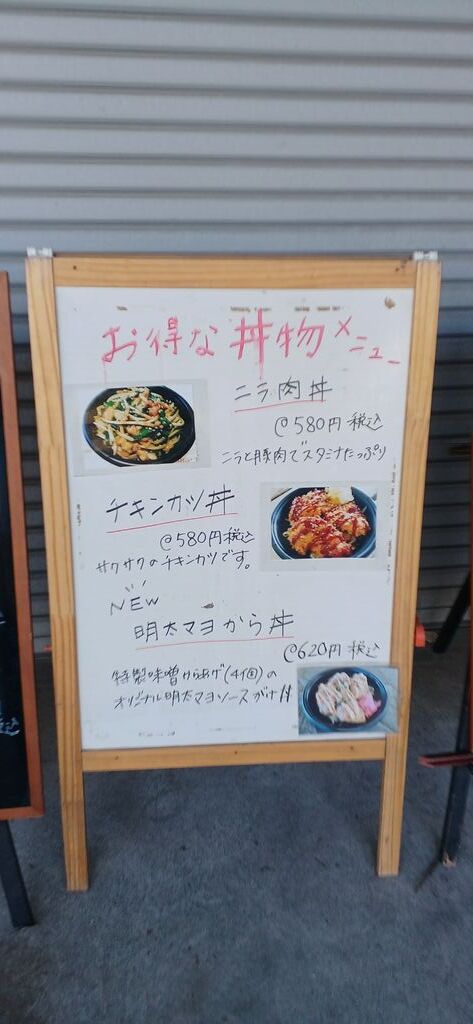 お得な丼物メニュー
ニラ肉丼
@580円税込
ニラと豚肉でスタミナたっぷり
チキンカツ丼
@580円税込
サクサクのチキンカツです。
NEW
明太マヨから丼
@620円税込
特製味噌からあげ(4個)の
オリジナル明太マヨソースがけ!!